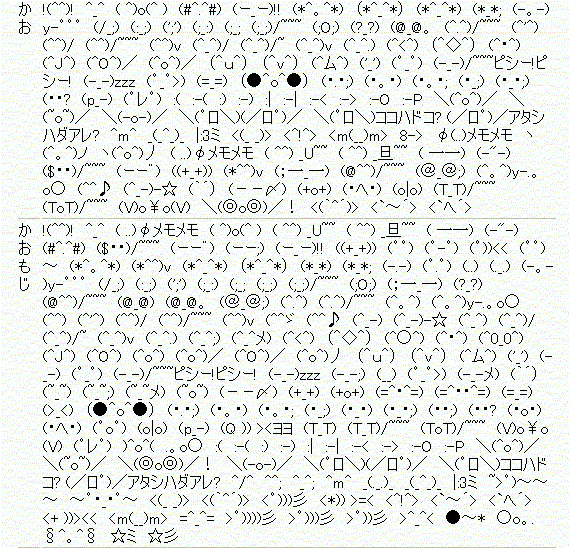 かお
!(^^)! ^_^ (^^)o(^^) (#^.^#) (ー_ー)!! (*^。^*) (*^^*) (*^_^*) (*_*) (-。-)
y-゜゜゜ (/_;) (;_;) (';') (;_;) (;_;) (;_;)/~~~ (;O;) (?_?) (@_@。 (^_^)/~~~ (^^)
(^^)/ (^^)/~~~ (^^)v (^_^)/ (^_^)/~ (^_^)v (^_^;) (^<^) (^◇^) (^・^)
(^J^) (^O^)／ (^o^)／ (^u^) (^v^) (^ム^) ('_') (゜_゜) (-_-)/~~~ピシー!ピ
シー! (-_-)zzz (゜_゜>) (=_=) (●^o^●) (・・;) (・。・) (・。・; (・_・) (・_・;)
(・・? (p_-) (ﾟレﾟ) :( :-( :) :-) :| :-| :-< :-> :-O :-P ＼(^o^)／ ＼
(~o~)／ ＼(-o-)／ ＼(゜ロ＼)(／ロ゜)／ ＼(゜ロ＼)ココハドコ? (／ロ゜)／アタシ
ハダアレ? ^m^ _(._.)_ |;3ミ <(_ _)> <`ヘ´> <m(__)m> 8-> φ(..)メモメモ ヽ
(^。^)ノ ヽ(^o^)丿 (..)φメモメモ ( ^^) _U~~ ( ^^) _旦~~ ( 一一) (-"-)
($・・)/~~~ (ーー゛) ((+_+)) (*^^)v (；一_一) (@^^)/~~~ (＠_＠;) (^。^)y-.。
o○ (^^♪ (^_-)-☆ (｀´) (－－〆) (+o+) (・へ・) (o|o) (T_T)/~~~
(ToT)/~~~ (V)o￥o(V) ＼(◎o◎)／！ <(｀^´)> <`～´> <`ヘ´>
かおもじ
!(^^)! ^_^ (..)φメモメモ (^^)o(^^) ( ^^) _U~~ ( ^^) _旦~~ ( 一一) (-"-)
(#^.^#) ($・・)/~~~ (ーー゛) (ーー;) (ー_ー)!! ((+_+)) (ﾟﾟ) (ﾟ-ﾟ) (ﾟ))<< (ﾟﾟ)
～ (*^。^*) (*^^)v (*^_^*) (*^^*) (*^_^*) (*_*) (*_*; (-_-) (ﾟ.ﾟ) (.) (._.) (-。-
)y-゜゜゜ (/_;) (;_;) (';') (;_;) (;_;) (;_;) (;_;)/~~~ (;O;) (；一_一) (?_?)
(@^^)/~~~ (@_@) (@_@。 (＠_＠;) (^_^) (^_^)/~~~ (^。^) (^。^)y-.。o○
(^^) (^^) (^^)/ (^^)/~~~ (^^)v (^^ゞ (^^♪ (^_-) (^_-)-☆ (^_^) (^_^)/
(^_^)/~ (^_^)v (^_^;) (^_^;) (^_^メ) (^<^) (^◇^) (^○^) (^・^) (^0_0^)
(^J^) (^O^) (^o^) (^o^)／ (^O^)／ (^o^)丿 (^u^) (^v^) (^ム^) ('_') (-
_-) (゜_゜) (-_-)/~~~ピシー!ピシー! (-_-)zzz (-_-;) (__) (゜_゜>) (-_-メ) (｀´)
(~_~) (~_~;) (~_~メ) (~o~) (－－〆) (+_+) (+o+) (=^・^=) (=^・・^=) (=_=)
(>_<) (●^o^●) (・・;) (・。・) (・。・; (・_・;) (・_・) (・_・;) (・・;) (・・? (・o・)
(・へ・) (ﾟoﾟ) (o|o) (p_-) (Q )) ><ヨヨ (T_T) (T_T)/~~~ (ToT)/~~~ (V)o￥o
(V) (ﾟレﾟ) )^o^( .。o○ :( :-( :) :-) :| :-| :-< :-> :-O :-P ＼(^o^)／
＼(~o~)／ ＼(◎o◎)／！ ＼(-o-)／ ＼(゜ロ＼)(／ロ゜)／ ＼(゜ロ＼)ココハド
コ? (／ロ゜)／アタシハダアレ? ^/^ ^^; ^_^; ^m^ _(._.)_ (_^_) |;3ミ ~>ﾟ)～～
～ ～ﾟ・_・ﾟ～ <(_ _)> <(｀^´)> <ﾟ)))彡 <*)) >=< <`ヘ´> <`～´> <`ヘ´>
<+ ))><< <m(__)m> =^_^= >ﾟ))))彡 >ﾟ)))彡 >ﾟ))彡 >^_^< ●～* ○o。.
§^。^§ ☆ミ ☆彡